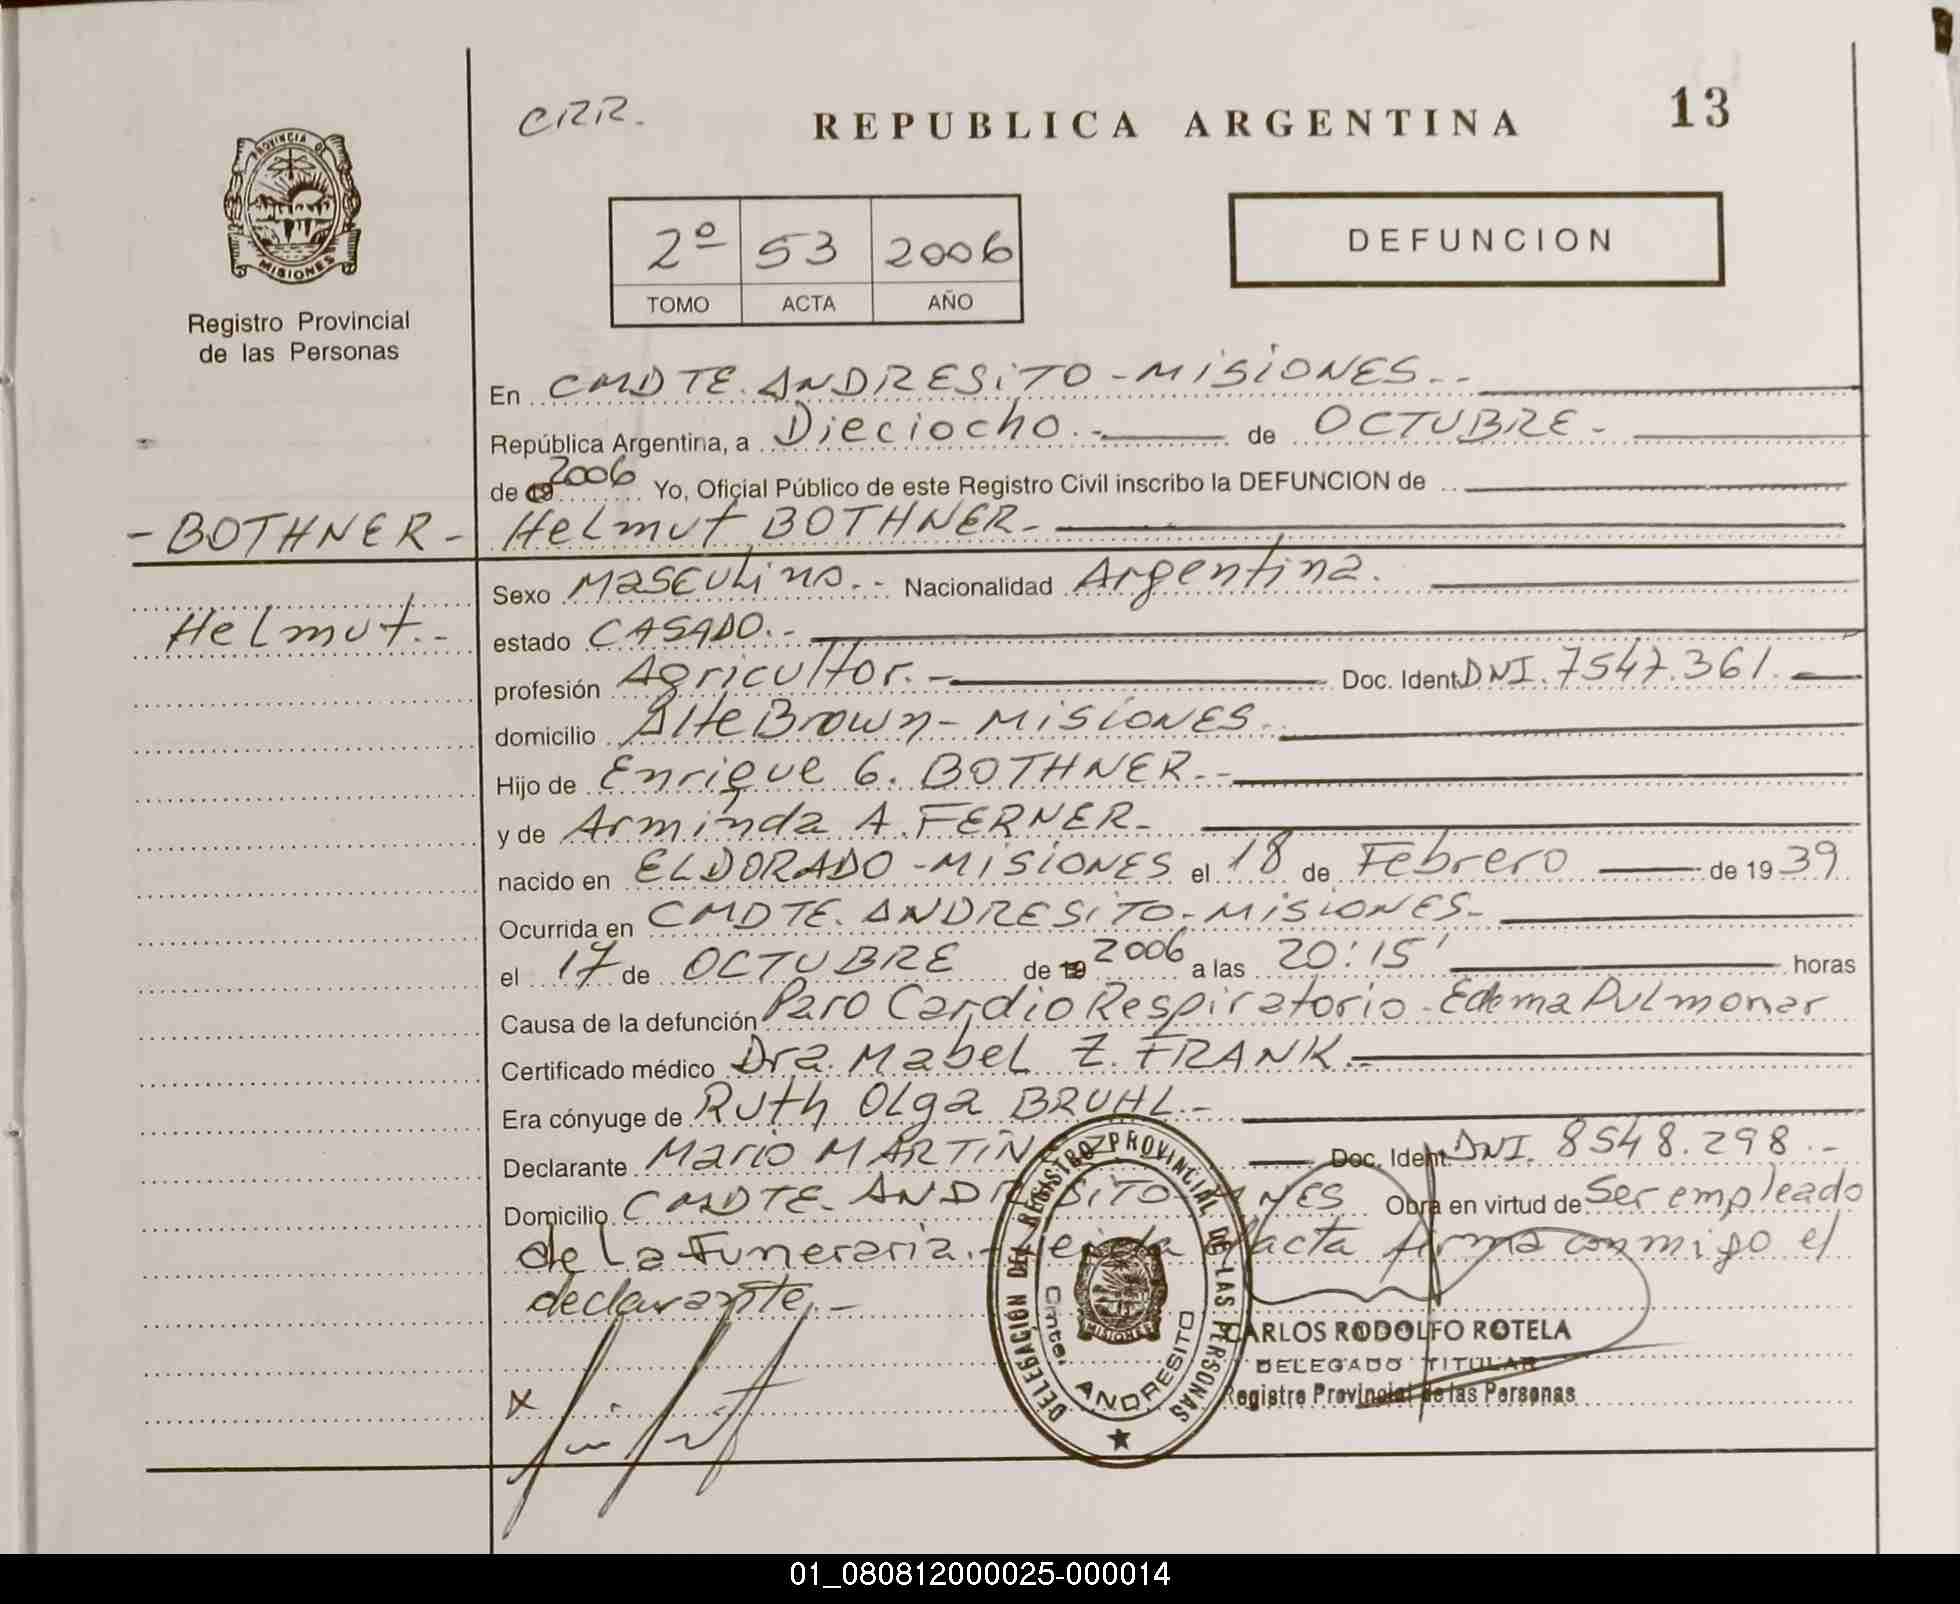 CRR.
REPUBLICA ARGENTINA
13
PROVINCIA DE
MISIONES
Registro Provincial
de las Personas
2º 53 2006
TOMO ACTA AÑO
DEFUNCION
En CMDTE. ANDRESITO - MISIONES.-
República Argentina, a Dieciocho.- de OCTUBRE -
de 19 2006 Yo, Oficial Público de este Registro Civil inscribo la DEFUNCION de
- BOTHNER - Helmut BOTHNER -
Sexo Masculino.- Nacionalidad Argentina.
Helmut.- estado CASADO.-
profesión Agricultor.- Doc. Ident. DNI. 7547.361.
domicilio Alte Brown - MISIONES.
Hijo de Enrique G. BOTHNER.-
y de Arminda A. FERNER-
nacido en ELDORADO - MISIONES el 18 de Febrero de 19 39
Ocurrida en CMDTE. ANDRESITO - MISIONES-
el 17 de OCTUBRE de 19 2006 a las 20:15' horas
Causa de la defunción Paro Cardio Respiratorio - Edema Pulmonar
Certificado médico Dra. Mabel Z. FRANK.-
Era cónyuge de Ruth Olga BRUHL.-
Declarante Mario MARTINEZ Doc. Ident. DNI. 8548.298.-
Domicilio CMDTE. ANDRESITO MNES Obra en virtud de Ser empleado
de La Funeraria.- Leida el acta firma conmigo el
declarante.-
DELEGACIÓN DEL REGISTRO PROVINCIAL DE LAS PERSONAS
Cmte. ANDRESITO
MISIONES
CARLOS RODOLFO ROTELA
DELEGADO TITULAR
Registro Provincial de las Personas
X
01_080812000025-000014